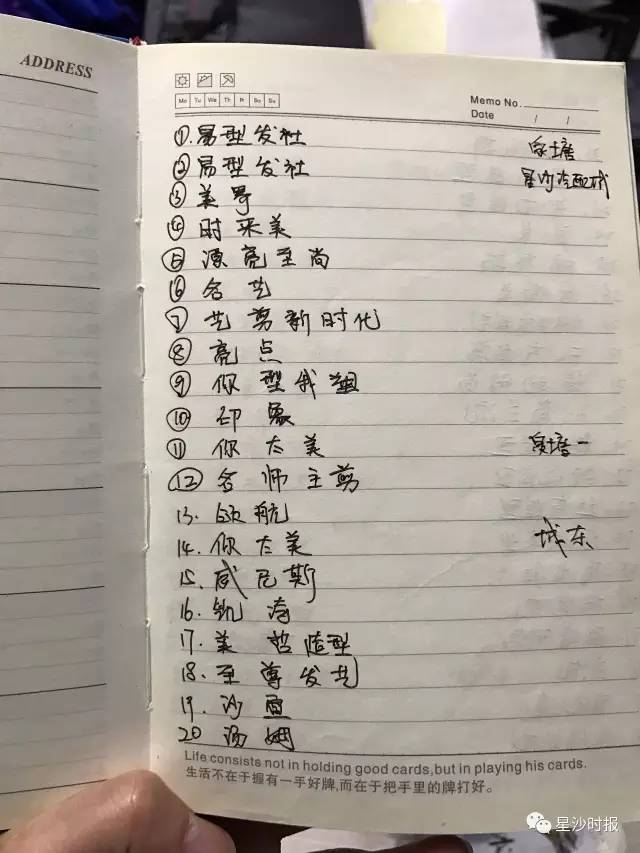 ADDRESS
Mo Tu We Th Fr Sa Su
Memo No.
Date / /
①.易型发社
②易型发社
星沙汽配城
③美哥
④时采美
⑤源亮至尚
⑥名艺
⑦艺剪新时代
⑧亮点
⑨你型我塑
⑩印象
⑪你太美
⑫名师主剪
13.领航
14.你太美 城东
15.威尼斯
16.凯涛
17.美哲造型
18.至尊发艺
19.沙宣
20汤姆
Life consists not in holding good cards,but in playing his cards.
生活不在于握有一手好牌,而在于把手里的牌打好。
星沙时报